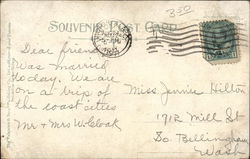 350
SOUVENIR POST CARD
Dear friend
Was married
today. We are
on a trip of
the coast cities
Mr & Mrs W. Cloak
Miss Jennie Hilton
1912 Mill St
So. Bellingham
Wash